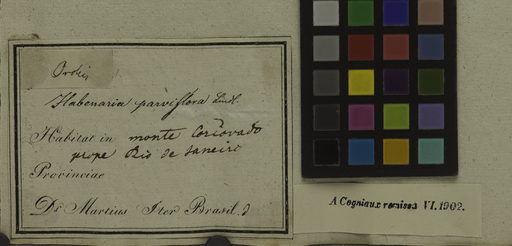 Orchis
Habenaria parviflora Lindl.
Habitat in monte Corcovado
prope Rio de Janeiro
Provinciae
Dr Martius Iter Brasil.
A Cogniaux remisea VI. 1902.